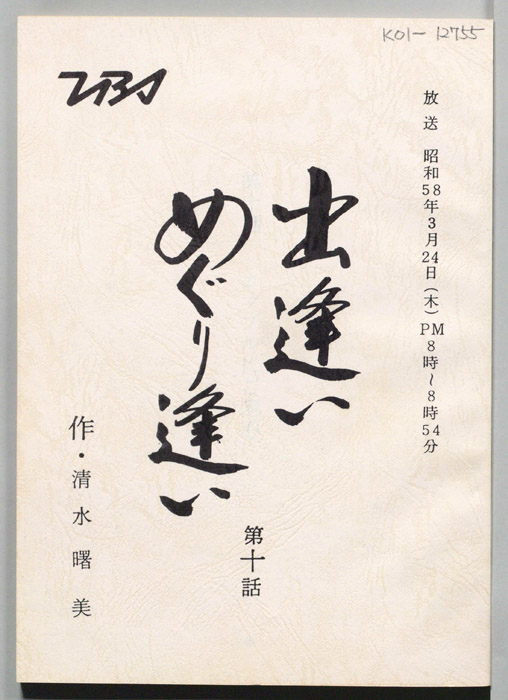 K01-12755
TBS
放送 昭和58年3月24日(木)PM8時~8時54分
出逢い
めぐり逢い
第十話
作・清水曙美